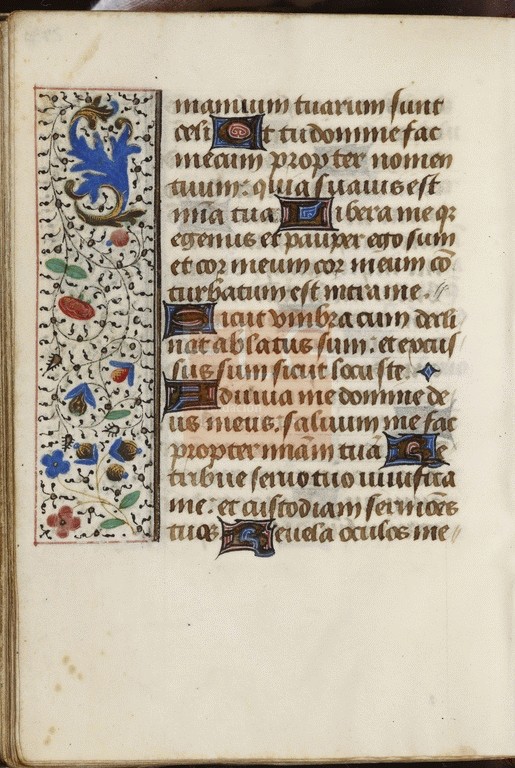 manuum tuarum sunt
celi Et tu domine fac
mecum propter nomen
tuum: quia suavis est
mīa tua. Libera me qz
egenus et pauper ego sum
et cor meum cor meum cō
turbatum est intra me.
Sicut vmbra cum decli
nat ablatus sum: et excus
sus sum sicut locuste.
Adiuua me domine de
us meus. saluum me fac
propter miām tuā Re
tribue seruo tuo viuifica
me: et custodiam sermōes
tuos Reuela oculos me